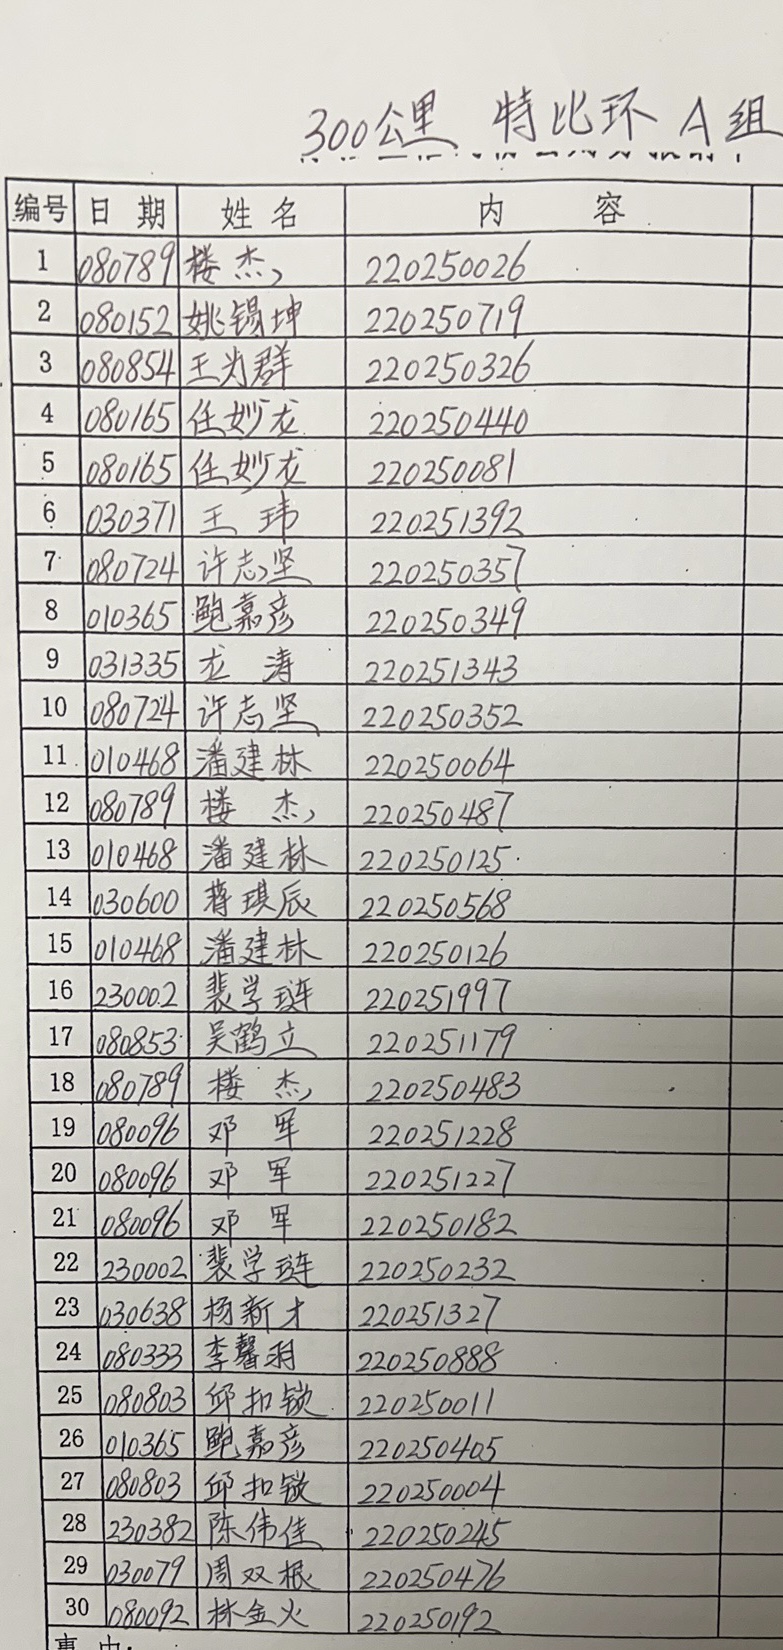 300公里 特比环 A组
编号 日期 姓名 内容
1 080789 楼杰 220250026
2 080152 姚锡坤 220250719
3 080854 王为群 220250326
4 080165 任妙龙 220250440
5 080165 任妙龙 220250081
6 030371 王玮 220251392
7 080724 许志坚 220250357
8 010365 鲍嘉彦 220250349
9 031335 龙涛 220251343
10 080724 许志坚 220250352
11 010468 潘建林 220250064
12 080789 楼杰 220250487
13 010468 潘建林 220250125
14 030600 蒋琪辰 220250568
15 010468 潘建林 220250126
16 230002 裴学琏 220251997
17 080853 吴鹤立 220251179
18 080789 楼杰 220250483
19 080096 邓军 220251228
20 080096 邓军 220251227
21 080096 邓军 220250182
22 230002 裴学琏 220250232
23 030638 杨新才 220251327
24 080333 李馨羽 220250888
25 080803 邱扣锁 220250011
26 010365 鲍嘉彦 220250405
27 080803 邱扣锁 220250004
28 230382 陈伟佳 220250245
29 030079 周双根 220250476
30 080092 林金火 220250192